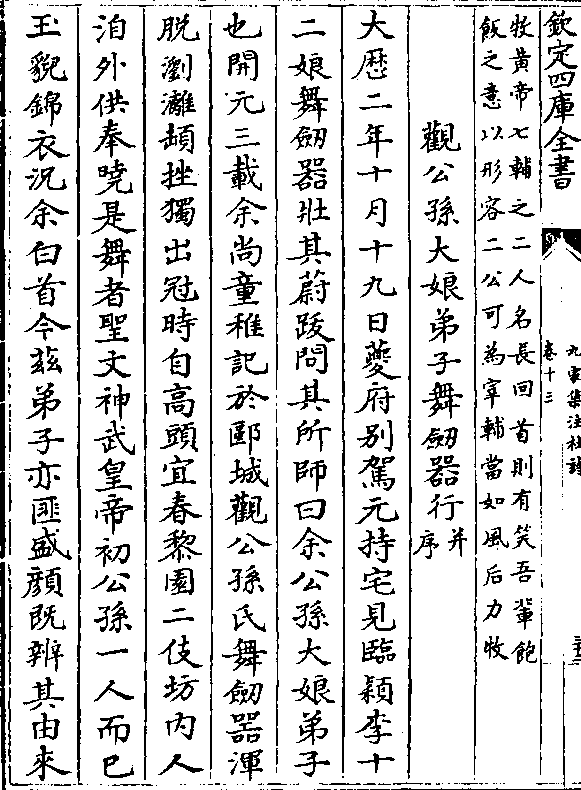 欽定四庫全書
九家集注杜詩
卷十三
牧黄帝七輔之二人名長回首則有笑吾輩飽
飯之意以形容二公可為宰輔當如風后力牧
觀公孫大娘弟子舞劒器行并序
大厯二年十月十九日夔府别駕元持宅見臨頴李十
二娘舞劒器壯其蔚跂問其所師曰余公孫大娘弟子
也開元三載余尚童稚記於郾城觀公孫氏舞劒器渾
脱瀏灕頓挫獨出冠時自高頭宜春棃園二伎坊内人
洎外供奉曉是舞者聖文神武皇帝初公孫一人而已
玉貌錦衣況余白首今兹弟子亦匪盛顔既辨其由來